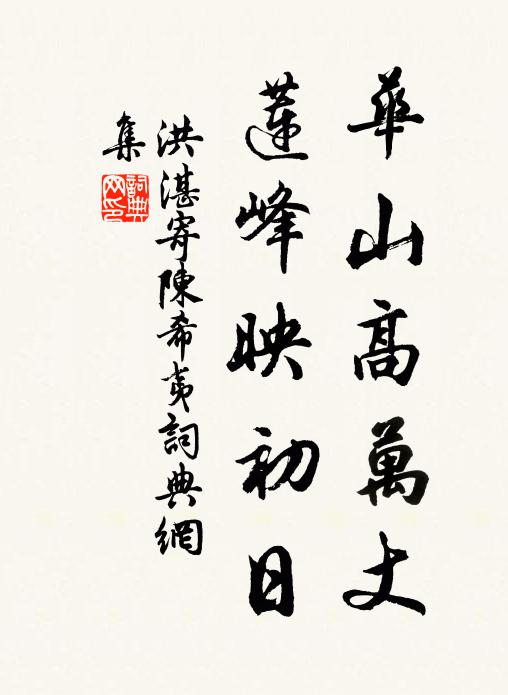 華山高萬丈
蓮峰映初日
洪湛寄陳希夷詞典網
集
詞典网印